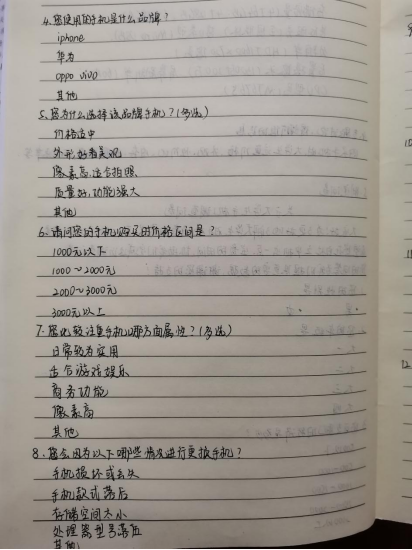 4.您使用的手机是什么品牌?
iphone
华为
oppo vivo
其他
5.您为什么选择该品牌手机?(多选)
价格适中
外形好看美观
像素高,适合拍照
质量好,功能强大
其他
6.请问您的手机购买时价格区间是?
1000元以下
1000~2000元
2000~3000元
3000元以上
7.您比较注重手机哪方面属性?(多选)
日常较为实用
适合游戏娱乐
商务功能
像素高
其他
8.您会因为以下哪些情况进行更换手机?
手机损坏或丢失
手机款式落后
存储空间太小
处理器型号落后
其他
10
11
12